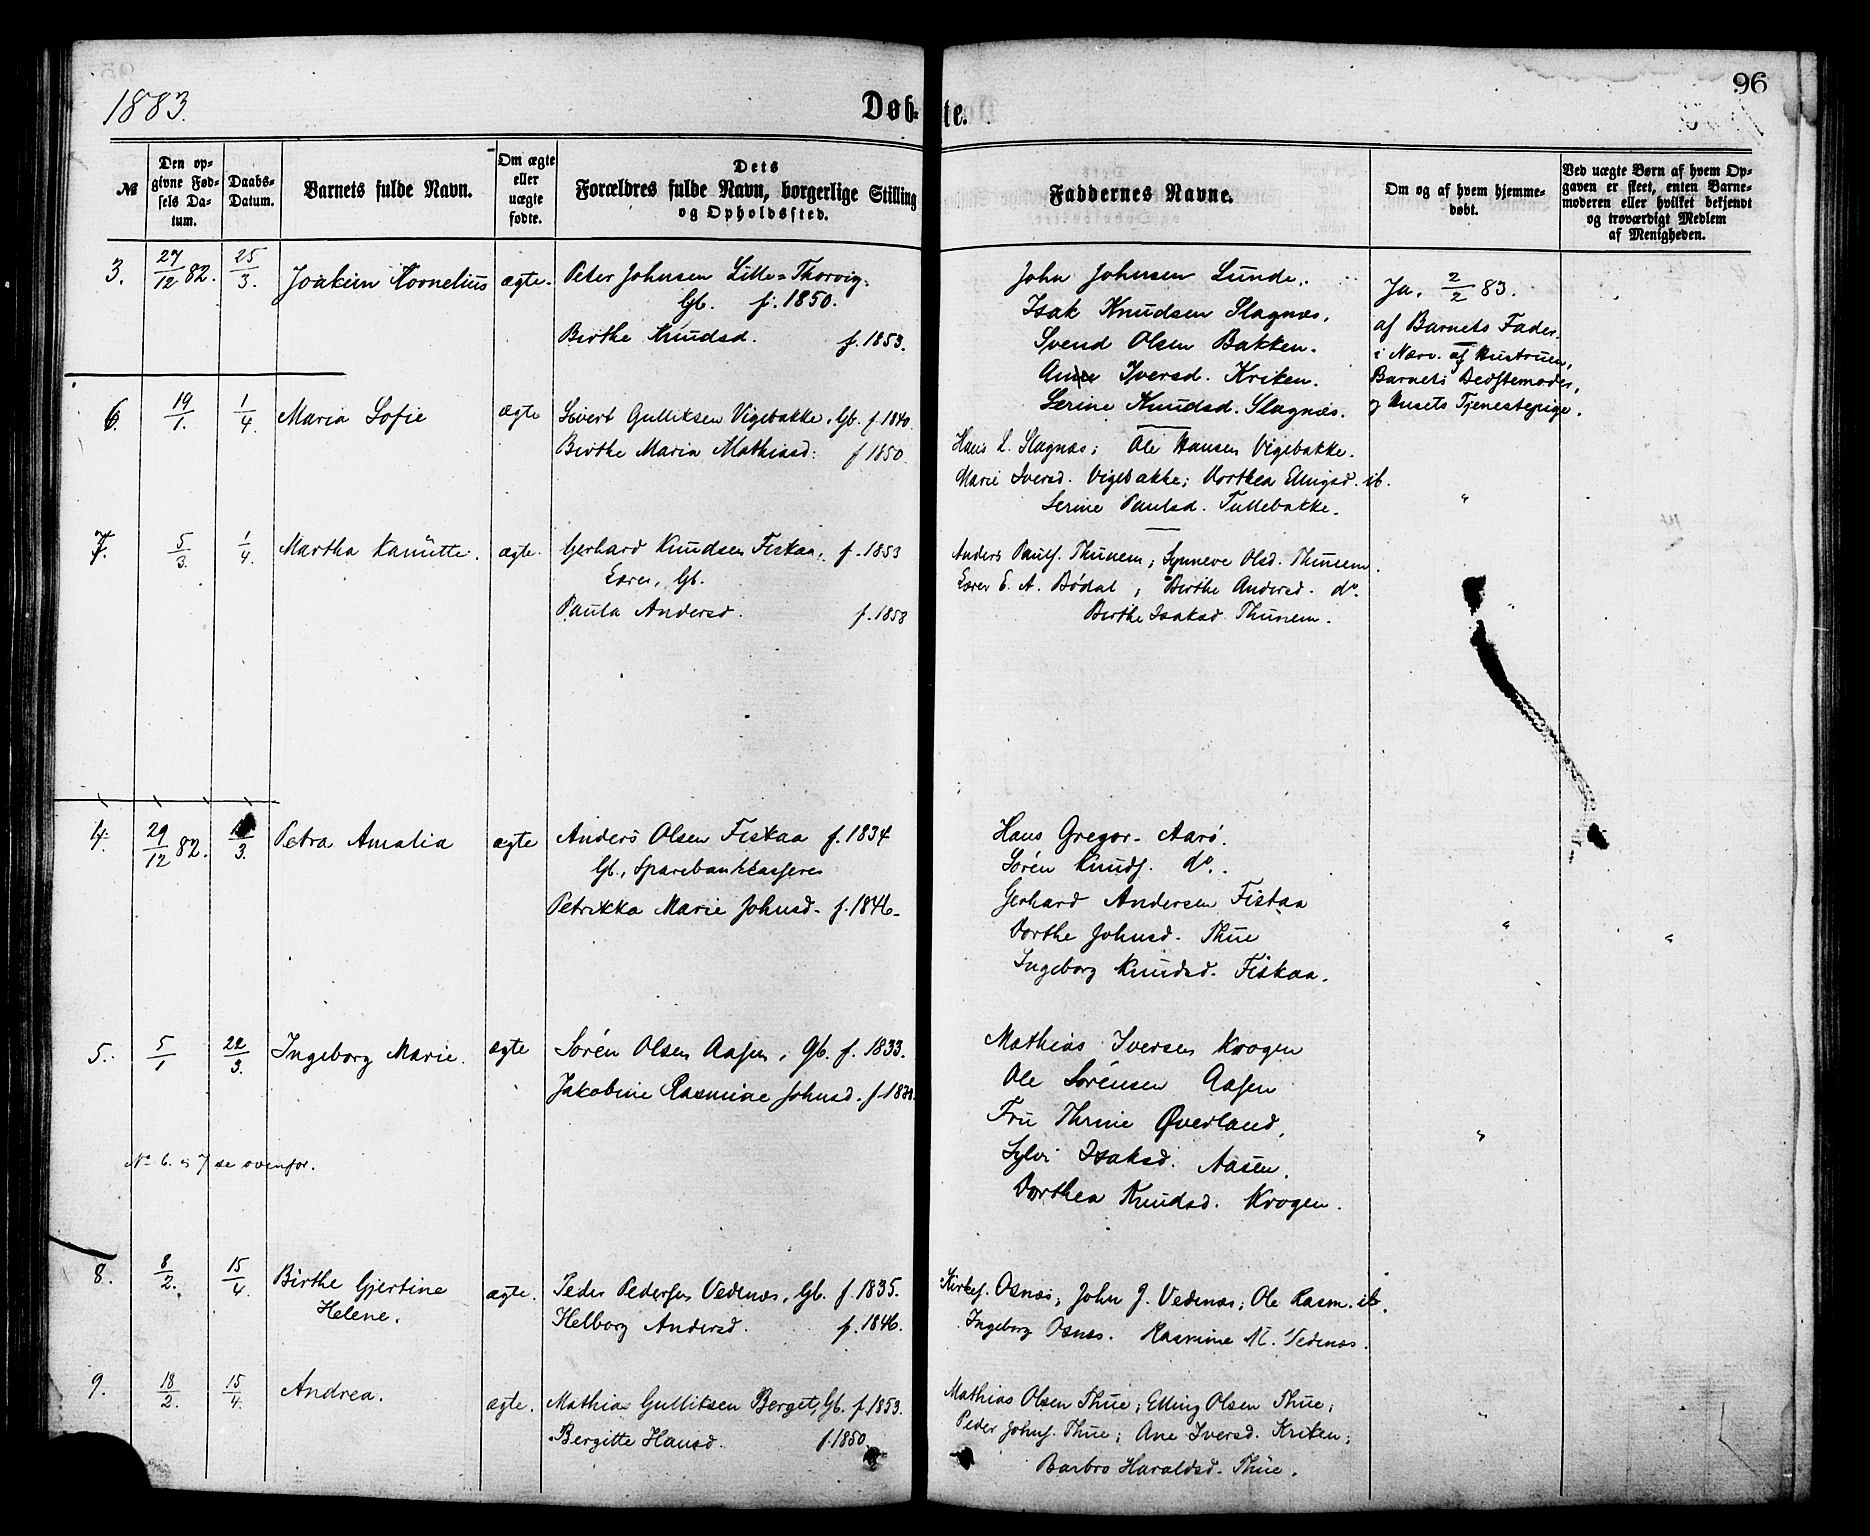 1883.
Døb-
te.
96
№
Den op-
givne Fød-
sels Da-
tum.
Daabs-
Datum.
Barnets fulde Navn.
Om ægte
eller
uægte
fødte.
Dets
Forældres fulde Navn, borgerlige Stilling
og Opholdssted.
Faddernes Navne.
Om og af hvem hjemme-
døbt.
Ved uægte Børn af hvem Op-
gaven er skeet, enten Barne-
moderen eller hvilket bekjendt
og troværdigt Medlem
af Menigheden.
3.
27/12 82.
25/3.
Joakim Kornelius
ægte.
Peter Johnsen Lille-Thorvig.
Gb. f. 1850.
Birthe Knudsd. f. 1853.
John Johnsen Lunde.
Isak Knudsen Slagnæs.
Svend Olsen Bakken.
Ane Iversd. Kriken.
Serine Knudsd. Slagnæs.
Ja. 2/2 83.
af Barnets Fader.
i Nærv. af Hustruen,
Barnets Bedstemoder,
og Husets Tjenestepige.
6.
19/1.
1/4.
Maria Sofie
ægte
Sivert Gulliksen Vigebakke, Gb. f. 1840.
Birthe Maria Mathiasd. f 1850.
Hans L. Slagnæs; Ole Hansen Vigebakke.
Marie Iversd. Vigebakke; Dorthea Ellingsd. ib.
Serine Paulsd. Tullebakke.
"
7.
5/3.
1/4.
Martha Kanutte.
ægte.
Gerhard Knudsen Fiskaa, f. 1853
Lærer, Gb.
Paula Andersd. f. 1858
Anders Paulf. Thunem; Synneve Olsd. Thunem.
Lærer E. A. Bødal, Birthe Andersd. do.
Birthe Isaksd. Thunem.
"
4.
29/12 82.
/3.
Petra Amalia
ægte
Anders Olsen Fiskaa f. 1834
Gb., Sparebankkasserer
Petrikka Marie Johnsd. f. 1846.
Hans Gregor. Aarø.
Søren Knudf. do.
Gerhard Andersen Fiskaa
Dorthe Johnsd. Thue
Ingeborg Knudsd. Fiskaa.
"
"
5.
5/1
22/3.
Ingeborg Marie.
ægte
Søren Olsen Aasen, Gb. f. 1833.
Jakobine Rasmine Johnsd. f.
Mathias Iversen Krogen
Ole Sørensen Aasen
Fru Thrine Øverland,
Sylvi Isaksd. Aasen.
Dorthea Knudsd. Krogen.
"
No 6. og 7 se ovenfor.
8.
8/2.
15/4.
Birthe Gjertine
Helene.
ægte.
Peder Pedersen Vedenæs, Gb. f. 1835.
Helborg Andersd. f. 1846.
Kirkes. Osnæs; John J. Vedenæs; Ole Rasm. ib.
Ingeborg Osnæs. Rasmine M. Vedenæs.
9.
18/2.
15/4.
Andrea.
ægte.
Mathias Gulliksen Berget, Gb. f. 1853.
Bergitte Hansd. f. 1850.
Mathias Olsen Thue; Elling Olsen Thue;
Peder Johnf. Thue; Ane Iversd. Kriken;
Barbro Haraldsd. Thue.
"